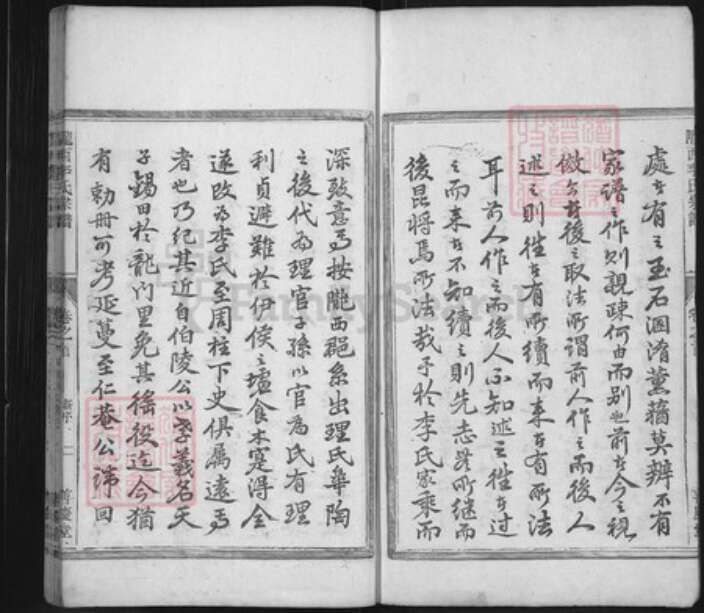 處者有之玉石溷淆薰蕕莫辨不有
家譜之作則親疎何由而別也前者今之視
倣之者後之取法所謂前人作之而後人
述之則往者有所續而来者有所法
耳前人作之而後人不知述之往者過
之而来者不知續之則先志器所继而
後昆将焉所法哉予於李氏家乘而
深致意焉按隴西郡系出理氏皋陶
之後代為理官子孫以官為氏有理
利貞避難於伊侯之墟食木寔得全
遂改為李氏至周柱下史俱属遠焉
者也乃紀其近自伯陵公以孝義名天
子錫田於龍门里免其徭役迄今猶
有勅册可考延蔓至仁菴公諱回
隴西李氏宗譜
卷之首
善慶堂
FamilySearch